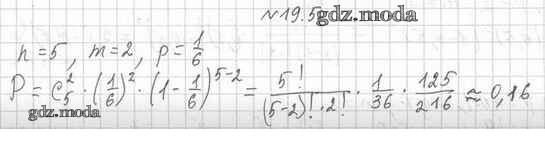 №19.5
gdz.moda
n=5, m=2, p=1/6
P = C₅² · (1/6)² · (1-1/6)⁵⁻² = 5!/((5-2)!·2!) · 1/36 · 125/216 ≈ 0,16
gdz.moda